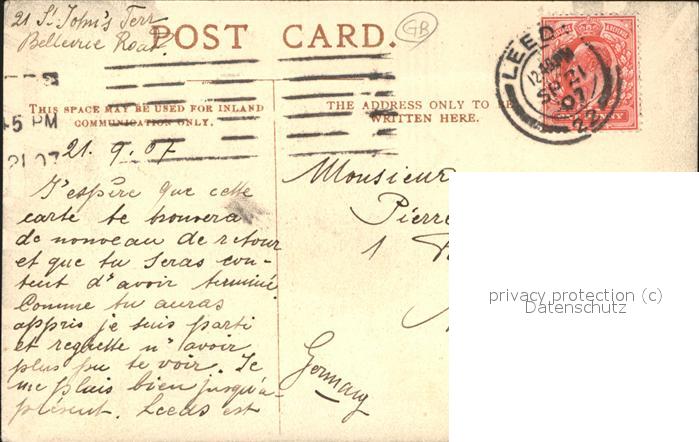 21 St John's Terr
Bellevue Road.
POST CARD.
GB
LEEDS
12
SP 21
07
22
THIS SPACE MAY BE USED FOR INLAND
COMMUNICATION ONLY.
THE ADDRESS ONLY TO BE
WRITTEN HERE.
45 PM
21 07
21. 9. 07
J'espère que cette
carte te trouvera
de nouveau de retour
et que tu seras con-
tent d'avoir terminé.
Comme tu auras
appris je suis parti
et regrette n'avoir
plus pu te voir. Je
me plais bien jusqu'à-
présent. Leeds est
Monsieur
Pierre
1
Germany
privacy protection (c)
Datenschutz